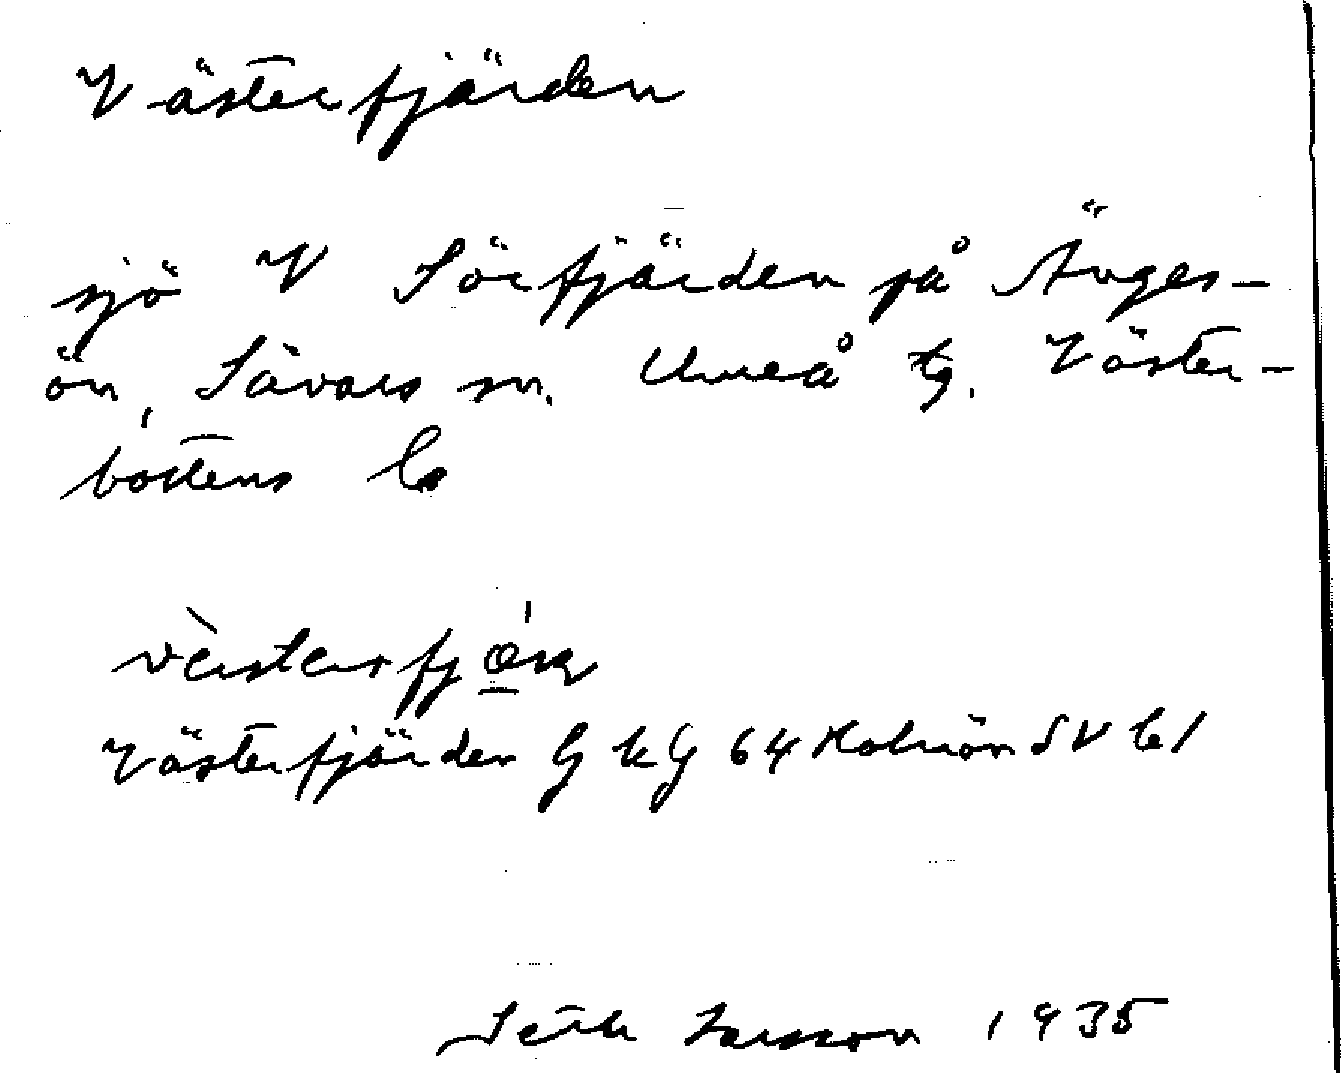 Västerfjärden
sjö V Sörfjärden på Änges-
ön, Sävars sn. Umeå tg. Väster-
bottens lä
Västerfjärden G k G 64 Holmön SV bl
Seth Larsson 1935